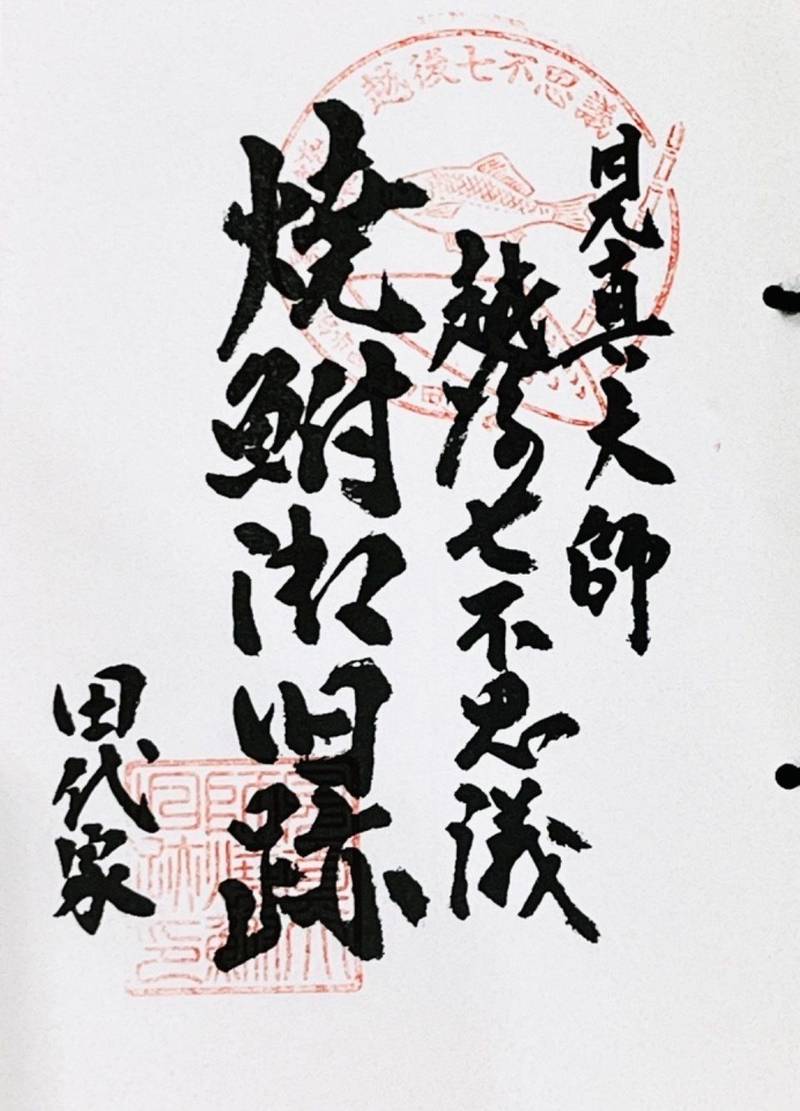 越後七不思議
見真大師
越後七不思議
焼鮒御旧跡
田代家